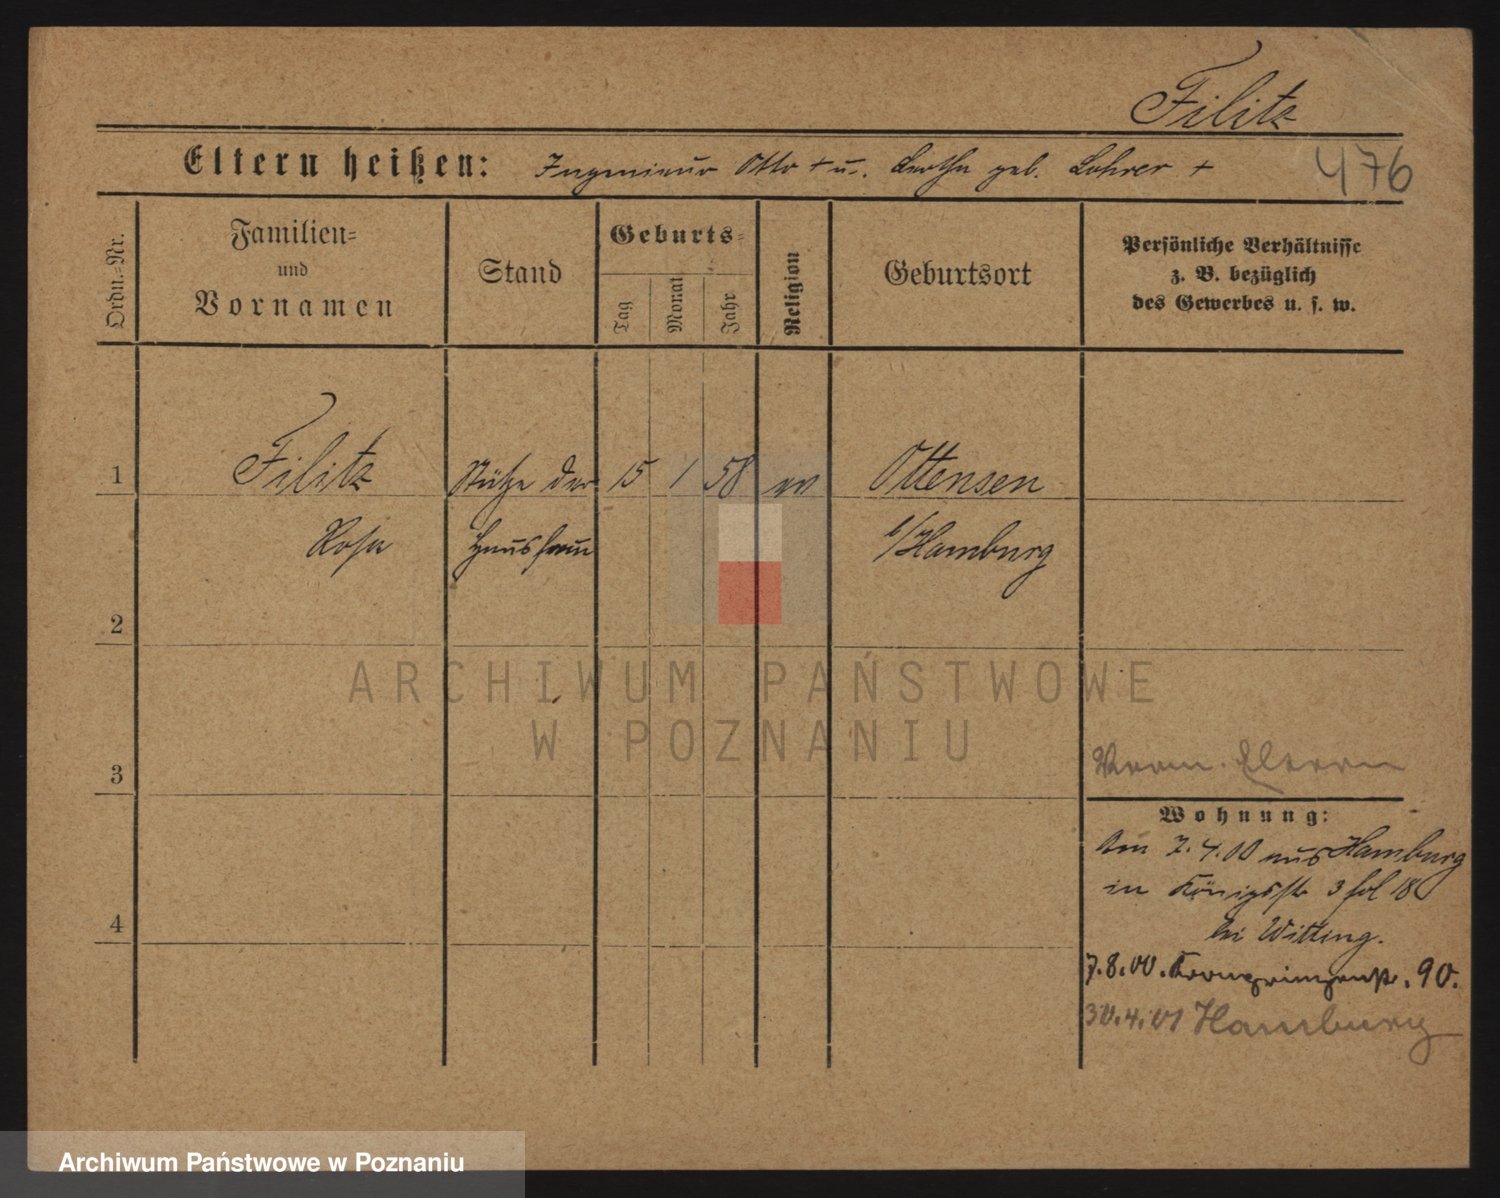 Filitz
Eltern heißen: Ingenieur Otto + u. Bertha geb. Lohrer +
476
Ordn.=Nr.
Familien=
und
Vornamen
Stand
Geburts=
Tag
Monat
Jahr
Religion
Geburtsort
Persönliche Verhältnisse
z. B. bezüglich
des Gewerbes u. s. w.
1
Filitz
Stütze der
15
1
58
ev
Ottensen
Rosa
Hausfrau
b/Hamburg
2
ARCHIWUM PAŃSTWOWE
W POZNANIU
3
Verm. Eltern
Wohnung:
Am 7.4.00 aus Hamburg
in Königsstr 3 fol 18
bei Witting.
7.8.00. Kronprinzenstr. 90.
30.4.01 Hamburg
4
Archiwum Państwowe w Poznaniu